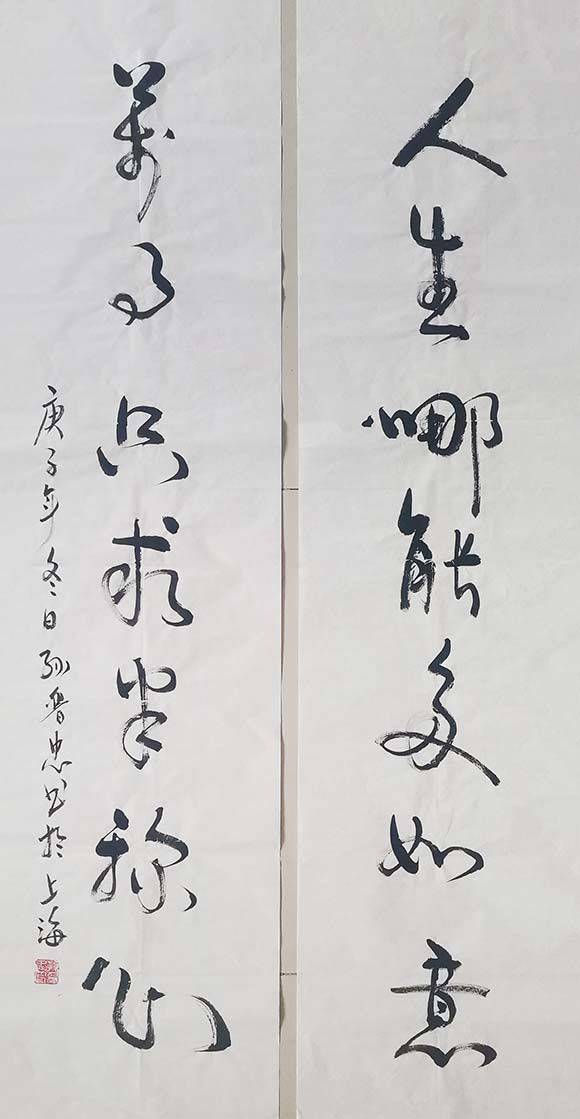 人生哪能多如意
萬事只求半称心
庚子年冬日孫忠书於上海